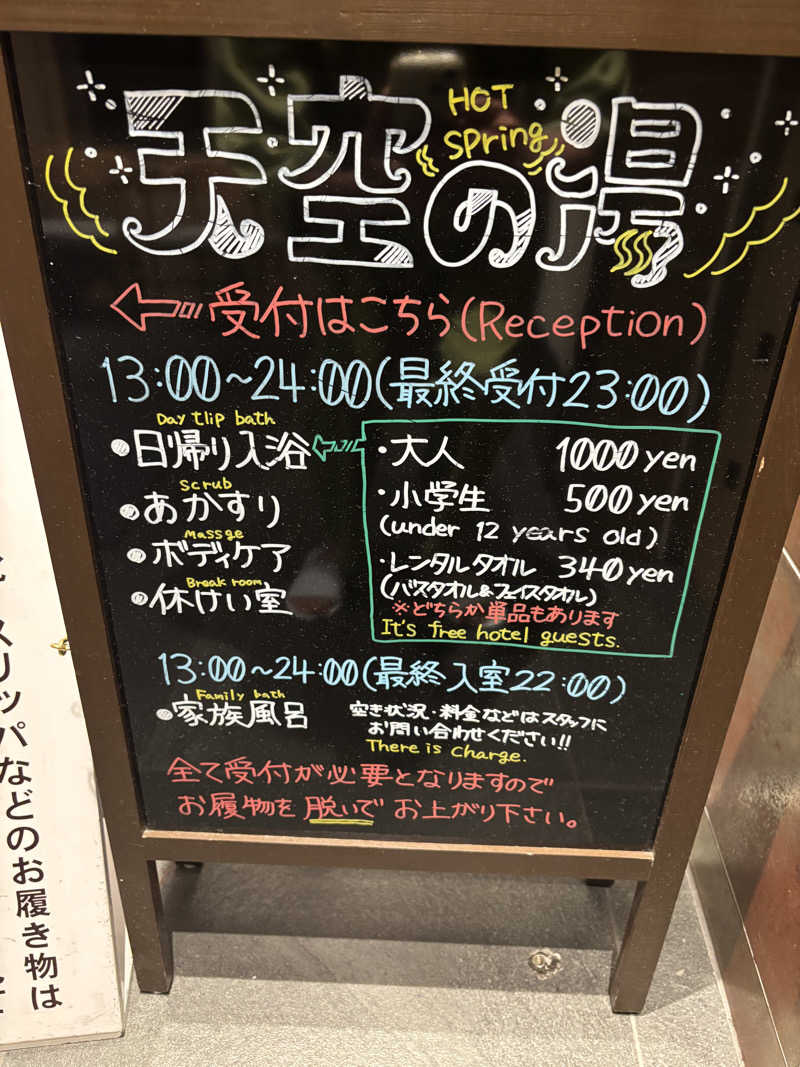 天空の湯
HOT
Spring
受付はこちら(Reception)
13:00~24:00(最終受付23:00)
Day tlip bath
・日帰り入浴
Scrub
・あかすり
Massge
・ボディケア
Break room
・休けい室
・大人 1000yen
・小学生 500yen
(under 12 years old)
・レンタルタオル 340yen
(バスタオル&フェイスタオル)
※どちらか単品もあります
It's free hotel guests.
13:00~24:00(最終入室22:00)
Family bath
・家族風呂
空き状況・料金などはスタッフに
お問い合わせください!!
There is charge.
全て受付が必要となりますので
お履物を脱いでお上がり下さい。
スリッパなどのお履き物は